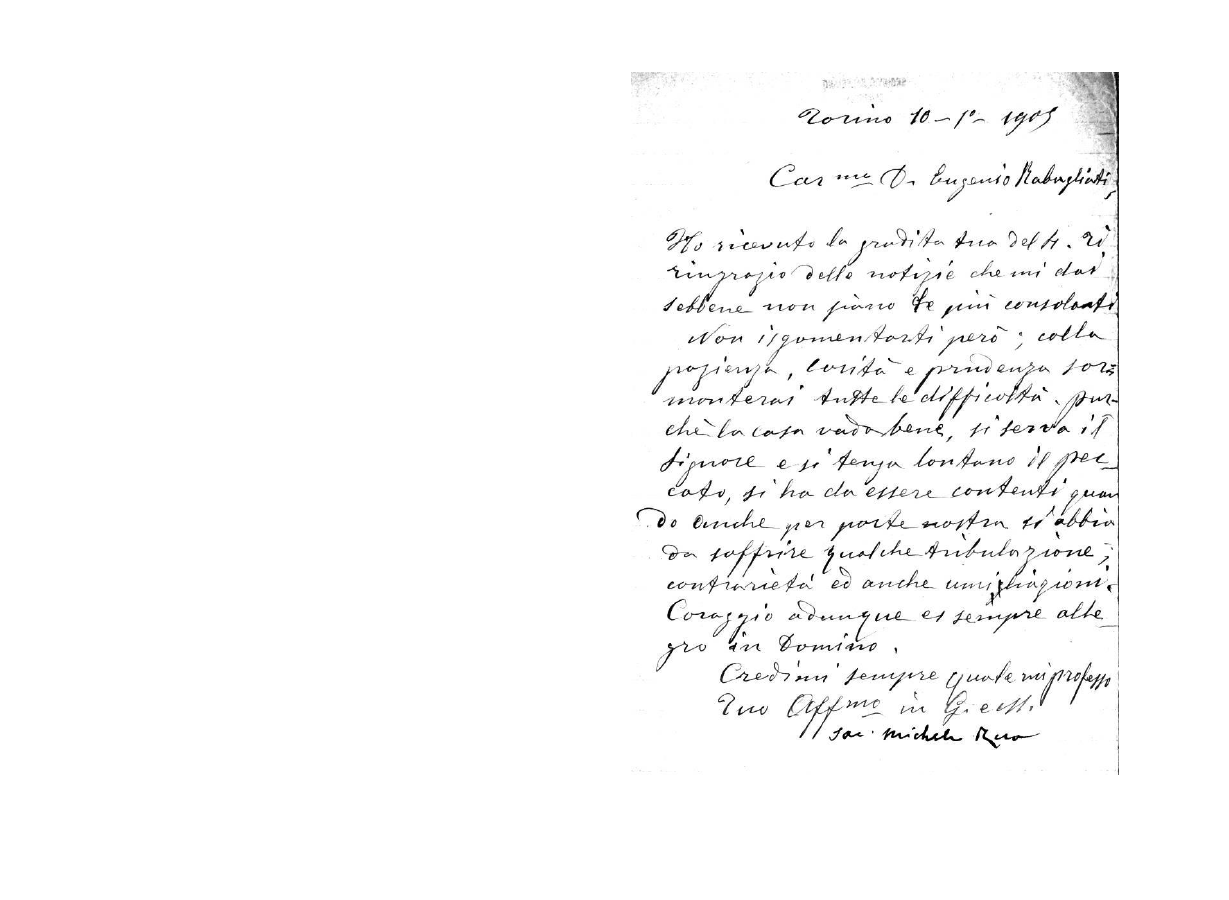 Torino 10 - 1° - 1905
Car mo D. Eugenio Rabagliati,
Ho ricevuto la gradita tua del 4. Ti
ringrazio delle notizie che mi dai
sebbene non siano le più consolanti
Non isgomentarti però; colla
pazienza, carità e prudenza sor=
monterai tutte le difficoltà. pur-
chè la casa vada bene, si serva il
Signore e si tenga lontano il pec_
cato, si ha da essere contenti quan
do anche per parte nostra si abbia
da soffrire qualche tribulazione;
contrarietà ed anche umigliazioni.
Coraggio adunque es sempre alle_
gro in Domino.
Credimi sempre quale mi professo
Tuo Affmo in G. e
Sac. Michele Rua